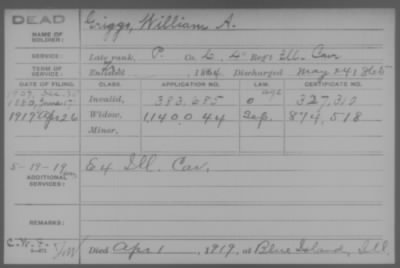 DEAD
NAME OF SOLDIER: Griggs, William A.
SERVICE: Late rank, P. Co. L, 4 Reg't Ill. Cav.
TERM OF SERVICE: Enlisted 1864 Discharged May 24 1865
DATE OF FILING. CLASS. APPLICATION NO. LAW. CERTIFICATE NO.
Invalid, 383,685 327,310
1880, June 17
1919 Apr 26 Widow, 1140 044 874,518
Minor,
5-19-19 Ex Ill. Cav.
ADDITIONAL SERVICES:
REMARKS:
Died Apr 1, 1919, at Blue Island, Ill.